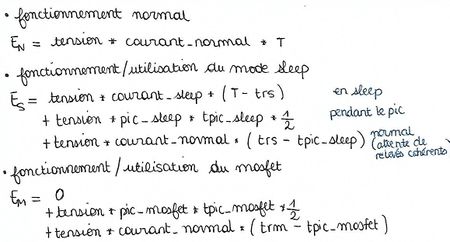 • fonctionnement normal
E_N = tension * courant_normal * T
• fonctionnement/utilisation du mode sleep
E_S = tension * courant_sleep * (T - trs) en sleep
+ tension * pic_sleep * tpic_sleep * 1/2 pendant le pic
+ tension * courant_normal * (trs - tpic_sleep) normal
(attente de
relevés cohérents)
• fonctionnement/utilisation du mosfet
E_M = 0
+ tension * pic_mosfet * tpic_mosfet * 1/2
+ tension * courant_normal * (trm - tpic_mosfet)